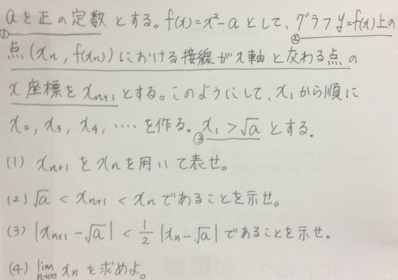 aを正の定数とする。f(x)=x²-aとして、グラフy=f(x)上の
① ②
点(xn, f(xn))における接線がx軸と交わる点の
x座標をxn+1とする。このようにして、x1から順に
x2, x3, x4, ‥‥を作る。x1>√aとする.
③
(1) xn+1をxnを用いて表せ。
(2) √a < xn+1 < xnであることを示せ。
(3) |xn+1-√a| < 1/2 |xn-√a|であることを示せ。
(4) lim n→∞ xnを求めよ。